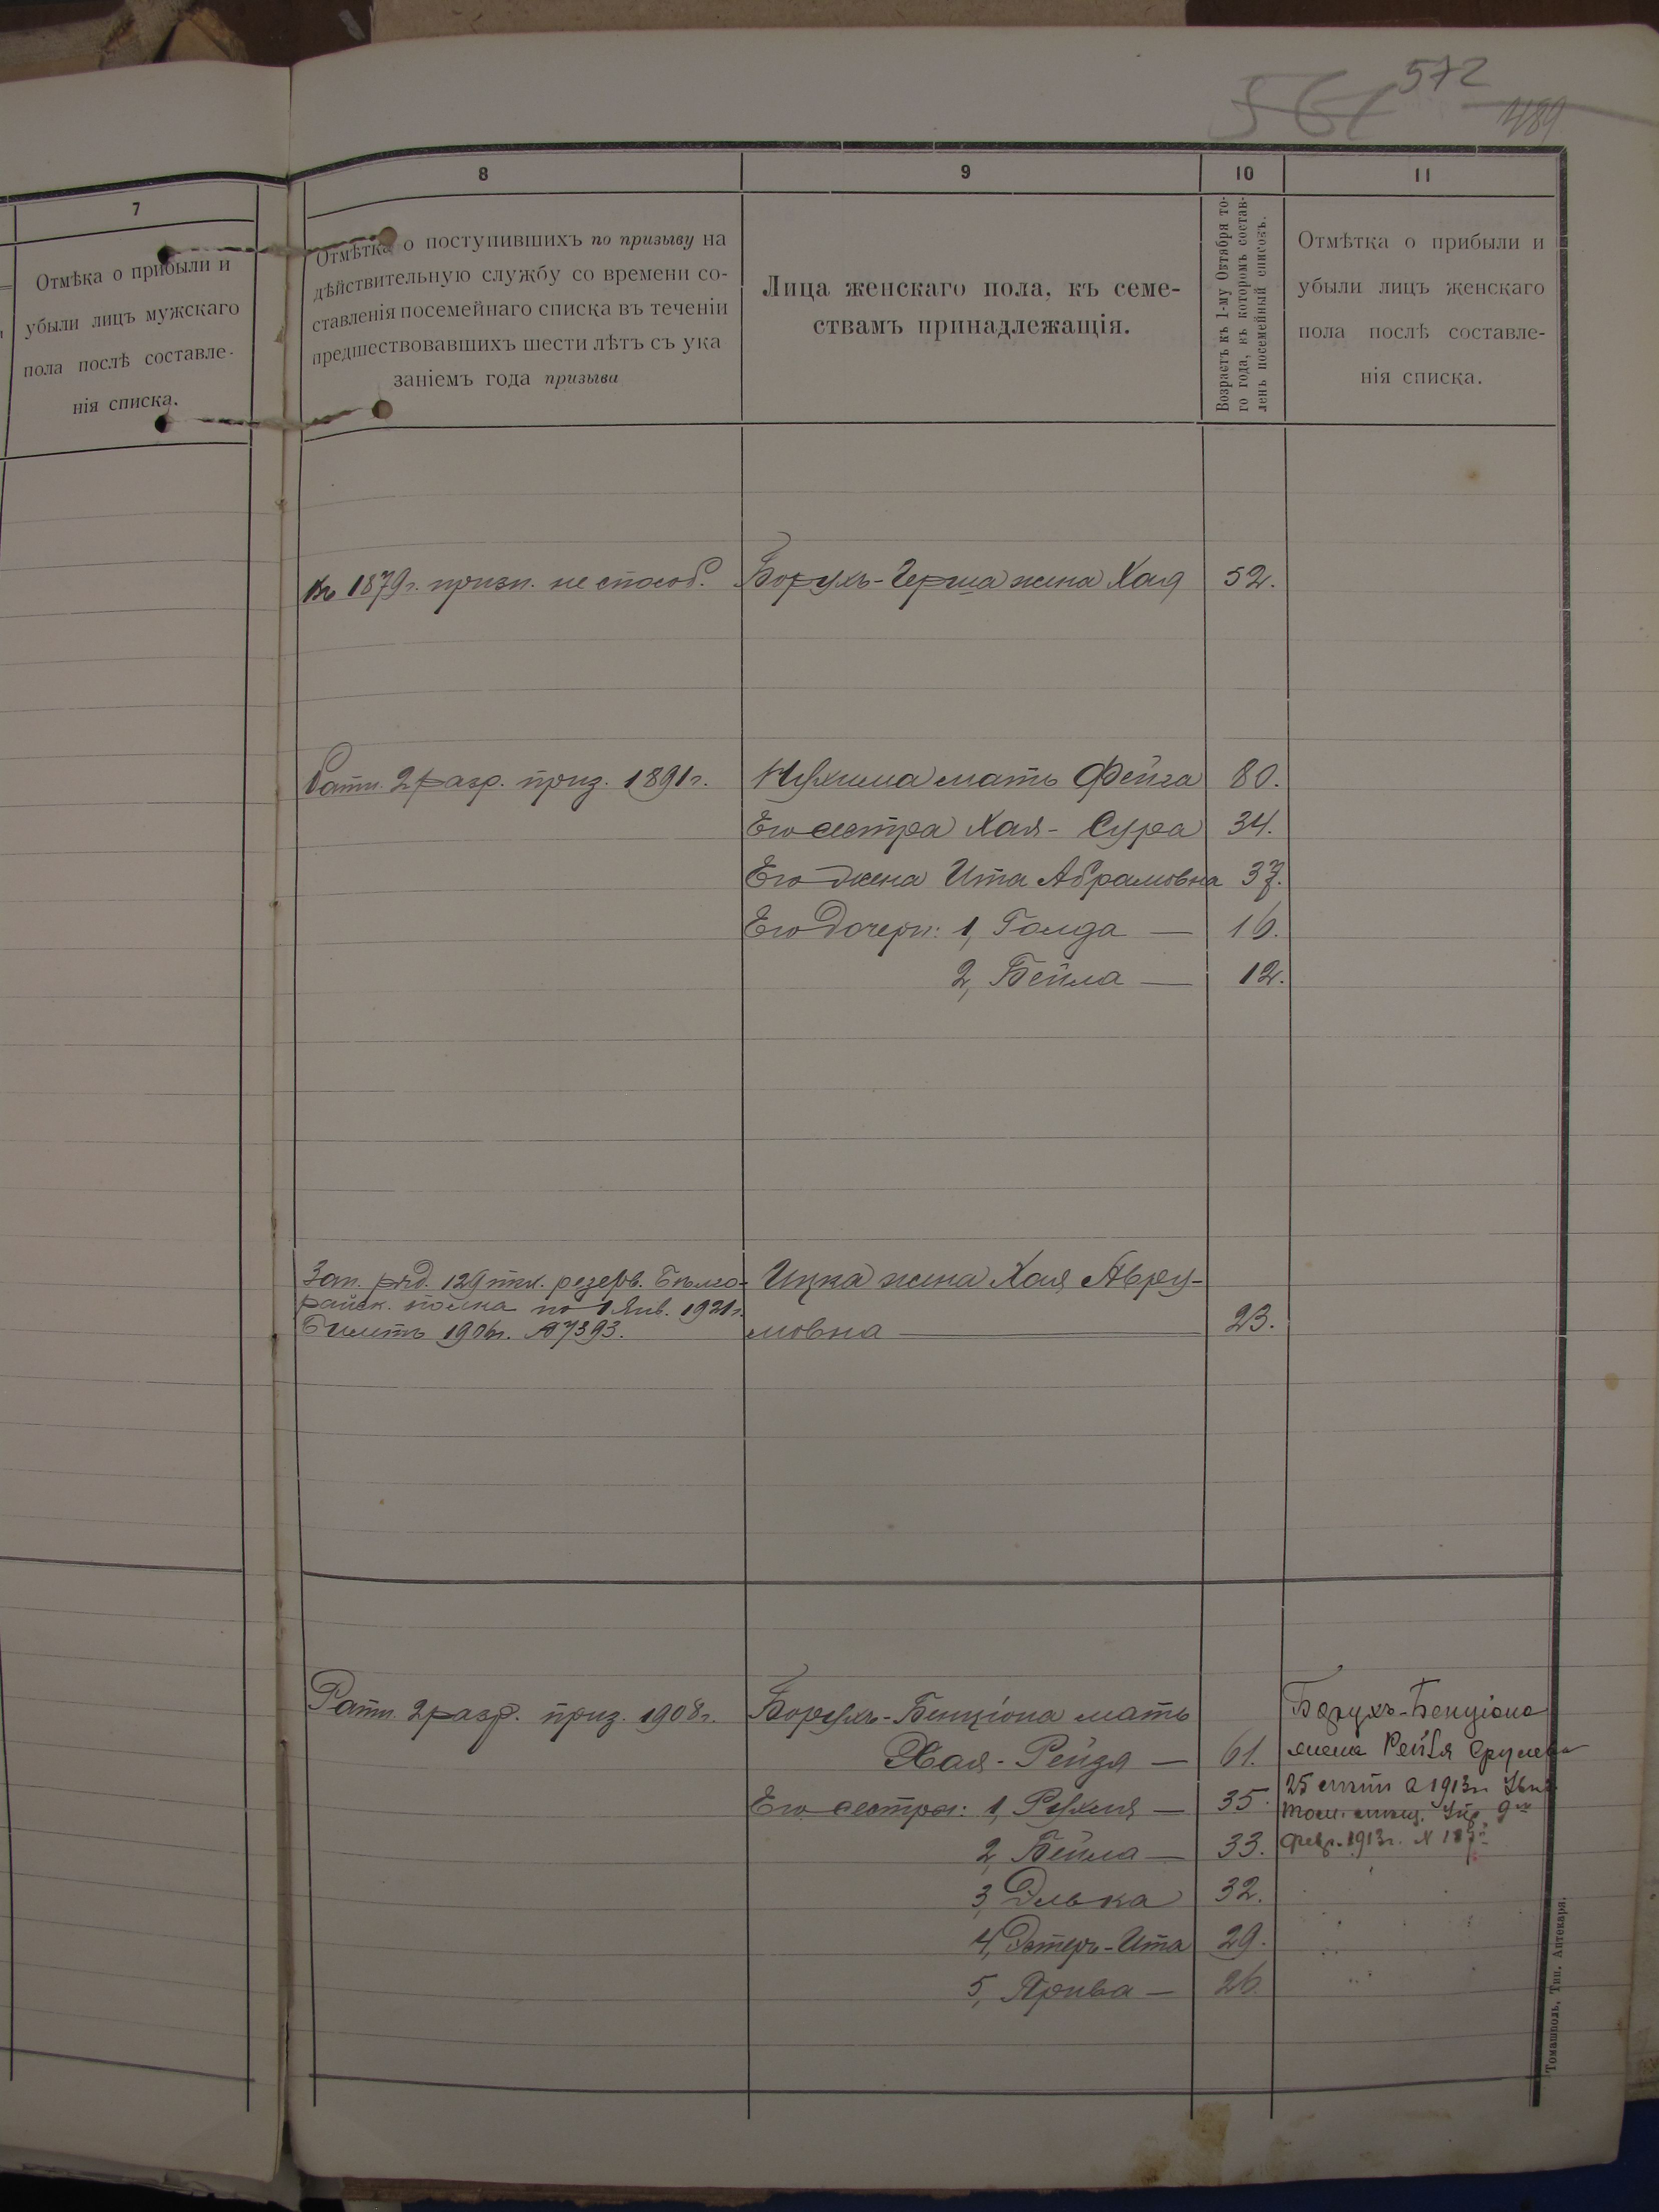 572
561
489
7
8
9
10
11
Отмѣка о прибыли и
убыли лицъ мужскаго
пола послѣ составле-
нія списка.
Отмѣтка о поступившихъ по призыву на
дѣйствительную службу со времени со-
ставленія посемейнаго списка въ теченіи
предшествовавшихъ шести лѣтъ съ ука
заніемъ года призыва
Лица женскаго пола, къ семе-
ствамъ принадлежащія.
Возрастъ къ 1-му Октября то-
го года, въ которомъ состав-
ленъ посемейный списокъ.
Отмѣтка о прибыли и
убыли лицъ женскаго
пола послѣ составле-
нія списка.
Въ 1879г. призн. не способ. Борухъ-Герша жена Хая 52.
Ратн. 2 разр. приз. 1891г. Нухима мать Фейга 80.
Его сестра Хая-Сура 34.
Его жена Ита Абрамовна 37.
Его дочери: 1, Голда — 16.
2, Бейла — 12.
Зап. ряд. 129 пѣх. резерв. Бѣлго-
райск. полка по 1 Янв. 1921г.
Билетъ 1906г. №7393.
Ицка жена Хая Авру-
мовна — 23.
Ратн. 2 разр. приз. 1908г. Борухъ-Бенціона мать
Хая-Рейзя — 61.
Его сестры: 1, Рухля — 35.
2, Бейла — 33.
3, Элька 32.
4, Эстеръ-Ита 29.
5, Прива — 26.
Борухъ-Бенціона
жена Рейзя Срулева
25 лѣтъ а 1913г.
мѣщ. Упр. 9го
февр. 1913г. N 187
Томашполь, Тип. Аптекаря.